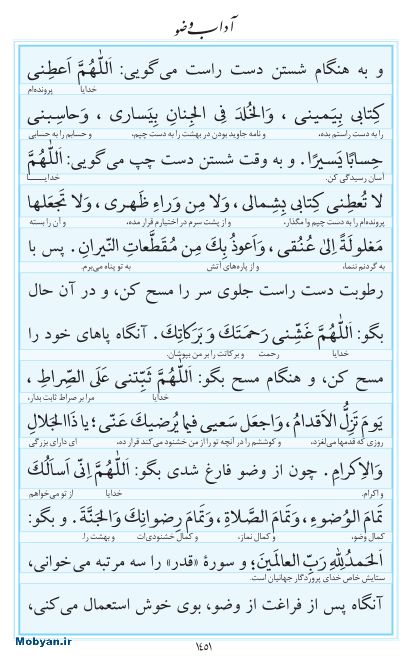 آداب وضو
و به هنگام شستن دست راست می‌گویی: اَللّٰهُمَّ اَعطِنی
خدایا پرونده‌ام
کِتابی بِیَمینی، وَالخُلدَ فِی الجِنانِ بِیَساری، وَحاسِبنی
را به دست راستم بده، و نامه جاوید بودن در بهشت را به دست چپم، و حسابم را به حسابی
حِسابًا یَسیرًا. و به وقت شستن دست چپ می‌گویی: اَللّٰهُمَّ
آسان رسیدگی کن. خدایا
لا تُعطِنی کِتابی بِشِمالی، وَلا مِن وَراءِ ظَهری، وَلا تَجعَلها
پرونده‌ام را به دست چپم وا مگذار، و از پشت سرم در اختیارم قرار مده، و آن را بسته
مَغلولَةً اِلیٰ عُنُقی، وَاَعوذُ بِكَ مِن مُقَطَّعاتِ النّیرانِ. پس با
به گردنم ننما، و از پاره‌های آتش به تو پناه می‌برم.
رطوبت دست راست جلوی سر را مسح کن، و در آن حال
بگو: اَللّٰهُمَّ غَشِّنی رَحمَتَكَ وَبَرَکاتِكَ. آنگاه پاهای خود را
خدایا رحمت و برکاتت را بر من بپوشان.
مسح کن، و هنگام مسح بگو: اَللّٰهُمَّ ثَبِّتنی عَلَی الصِّراطِ،
خدایا مرا بر صراط ثابت بدار،
یَومَ تَزِلُّ الاَقدامُ، وَاجعَل سَعیی فیما یُرضیكَ عَنّی؛ یا ذَا الجَلالِ
روزی که قدمها می‌لغزد، و کوششم را در آنچه تو را از من خشنود می‌کند قرار ده، ای دارای بزرگی
وَالاِکرامِ. چون از وضو فارغ شدی بگو: اَللّٰهُمَّ اِنّی اَسأَلُكَ
و اکرام. خدایا از تو می‌خواهم
تَمامَ الوُضوءِ، وَتَمامَ الصَّلاةِ، وَتَمامَ رِضوانِكَ وَالجَنَّةَ. و بگو:
کمال وضو، و کمال نماز، و کمال خشنودی‌ات و بهشت را.
اَلحَمدُلِلّٰهِ رَبِّ العالَمینَ؛ و سورۀ «قدر» را سه مرتبه می‌خوانی،
ستایش خاص خدای پروردگار جهانیان است.
آنگاه پس از فراغت از وضو، بوی خوش استعمال می‌کنی،
Mobyan.ir
۱۴۵۱